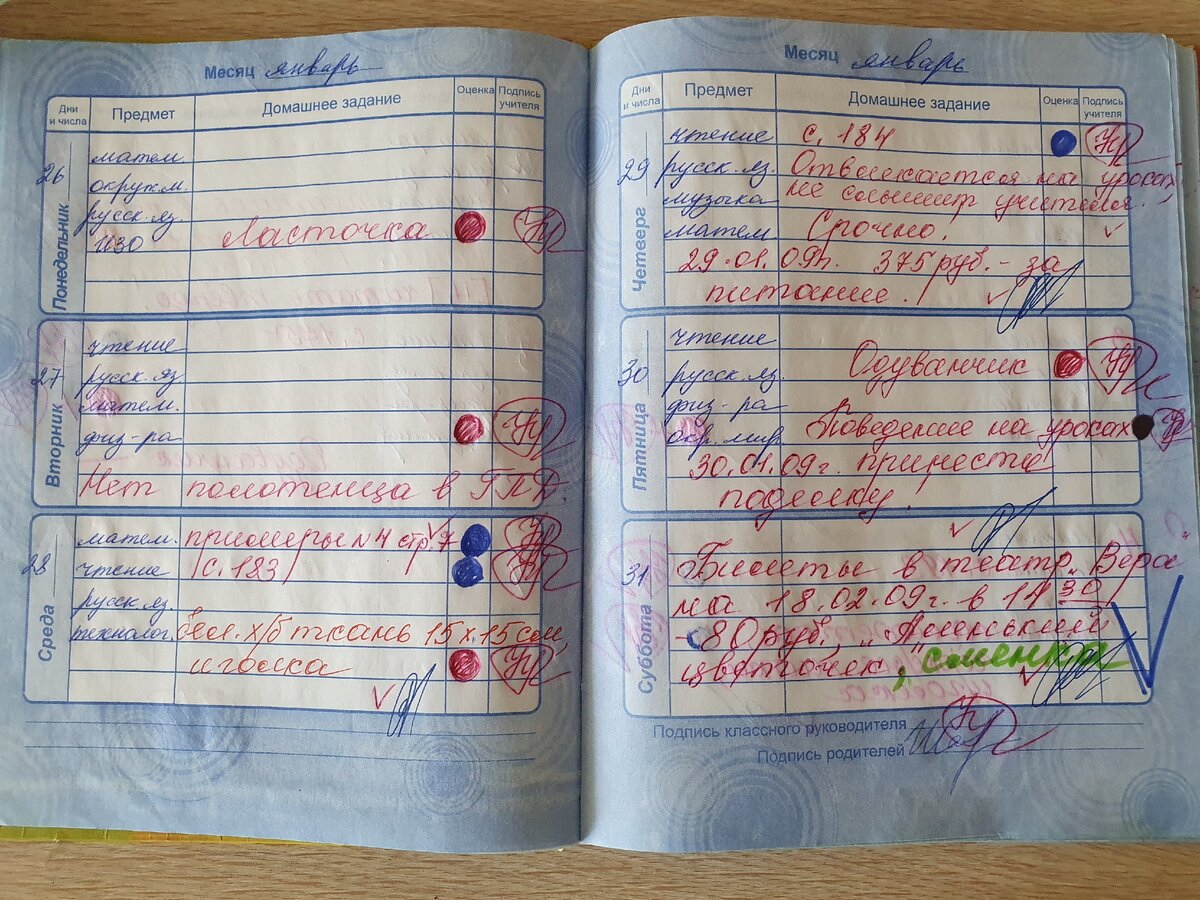 Месяц январь
Дни и числа Предмет Домашнее задание Оценка Подпись учителя
26 Понедельник
матем
окруж.м.
русск.яз.
ИЗО Ласточка
27 Вторник
чтение
русск.яз
матем.
физ-ра
Нет полотенца в ГПД.
28 Среда
матем. примеры №4 стр.7
чтение (с.183)
русск.яз.
технолог. бел. х/б ткань 15х15см,
иголка
Месяц январь
Дни и числа Предмет Домашнее задание Оценка Подпись учителя
29 Четверг
чтение с. 184
русск.яз. Отвлекается на уроках,
музыка не слышит учителя.
матем Срочно!
29.01.09г. 375руб. - за
питание!
30 Пятница
чтение
русск.яз. Одуванчик
физ-ра
окр.мир Поведение на уроках
30.01.09г. принести
поделку!
31 Суббота
Билеты в театр „Вера"
на 18.02.09г. в 14 30
- 80руб. „Аленький
цветочек", сменка
Подпись классного руководителя
Подпись родителей